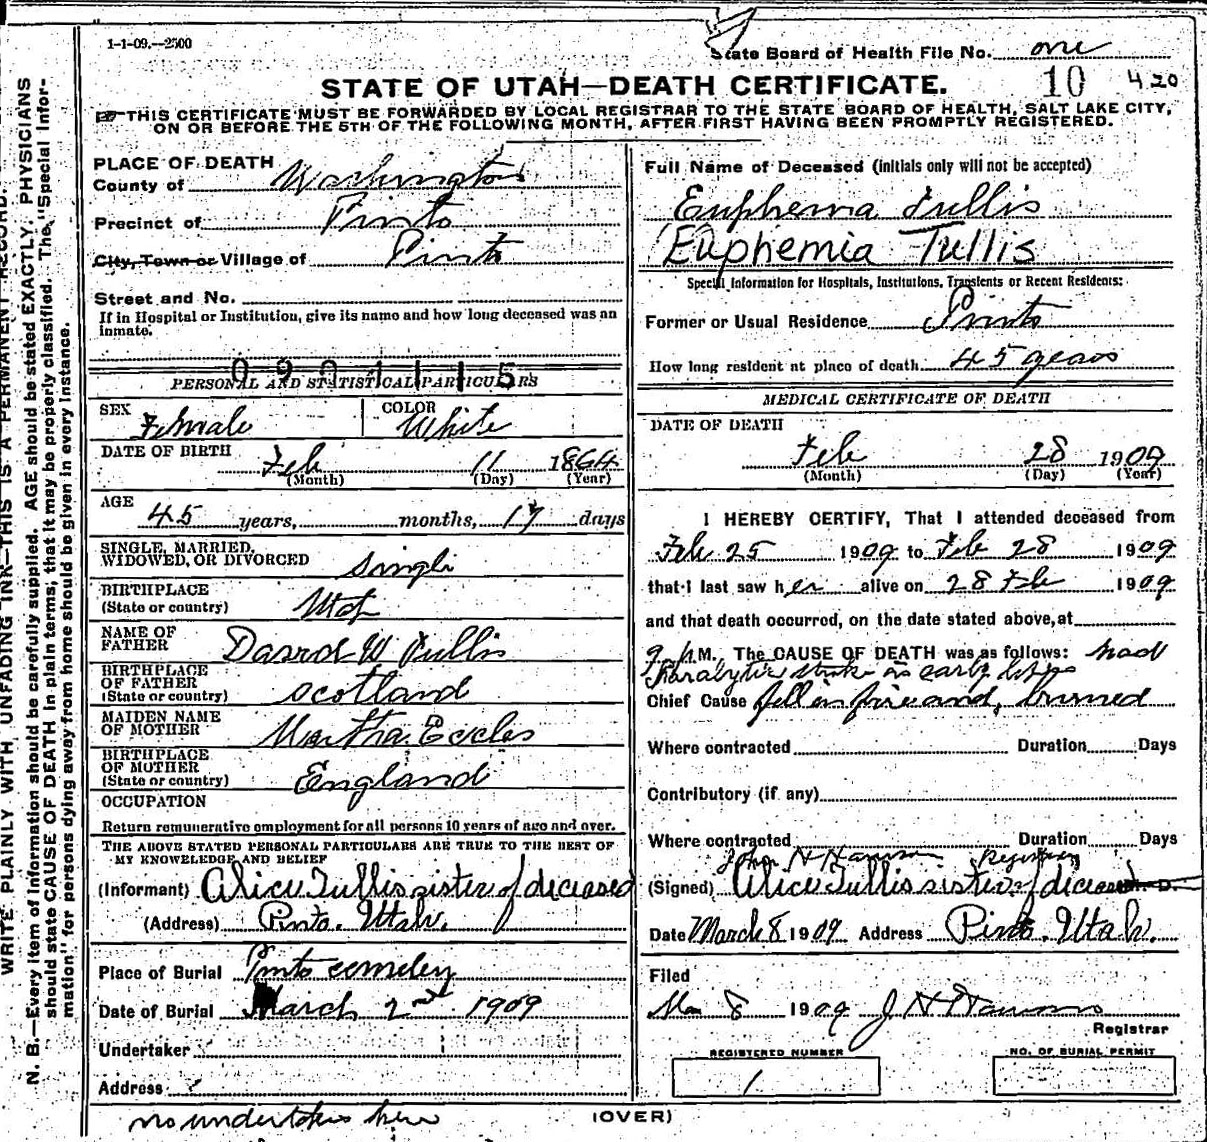 1-1-09.—2500
State Board of Health File No. one
10 420
STATE OF UTAH—DEATH CERTIFICATE.
THIS CERTIFICATE MUST BE FORWARDED BY LOCAL REGISTRAR TO THE STATE BOARD OF HEALTH, SALT LAKE CITY,
ON OR BEFORE THE 5TH OF THE FOLLOWING MONTH, AFTER FIRST HAVING BEEN PROMPTLY REGISTERED.
WRITE PLAINLY WITH UNFADING INK—THIS IS A PERMANENT RECORD.
N. B.—Every item of information should be carefully supplied. AGE should be stated EXACTLY. PHYSICIANS
should state CAUSE OF DEATH in plain terms, that it may be properly classified. The "Special Infor-
mation" for persons dying away from home should be given in every instance.
PLACE OF DEATH
County of Washington
Precinct of Pinto
City, Town or Village of Pinto
Street and No.
If in Hospital or Institution, give its name and how long deceased was an
inmate.
0901115
PERSONAL AND STATISTICAL PARTICULARS
SEX Female COLOR White
DATE OF BIRTH Feb 11 1864
(Month) (Day) (Year)
AGE 45 years, months, 17 days
SINGLE, MARRIED,
WIDOWED, OR DIVORCED Single
BIRTHPLACE
(State or country) Utah
NAME OF
FATHER David W Tullis
BIRTHPLACE
OF FATHER
(State or country) Scotland
MAIDEN NAME
OF MOTHER Martha Eccles
BIRTHPLACE
OF MOTHER
(State or country) England
OCCUPATION
Return remunerative employment for all persons 10 years of age and over.
THE ABOVE STATED PERSONAL PARTICULARS ARE TRUE TO THE BEST OF
MY KNOWELEDGE AND BELIEF
(Informant) Alice Tullis sister of deceased
(Address) Pinto. Utah.
Place of Burial Pinto cemetery
Date of Burial March 2nd 1909
Undertaker
Address
no undertakers here
Full Name of Deceased (initials only will not be accepted)
Euphema Tullis
Euphemia Tullis
Special Information for Hospitals, Institutions, Transients or Recent Residents:
Former or Usual Residence Pinto
How long resident at place of death 45 years
MEDICAL CERTIFICATE OF DEATH
DATE OF DEATH
Feb 28 1909
(Month) (Day) (Year)
I HEREBY CERTIFY, That I attended deceased from
Feb 25 1909 to Feb 28 1909
that I last saw her alive on 28 Feb 1909
and that death occurred, on the date stated above, at
9 p.M. The CAUSE OF DEATH was as follows: had
Paralytic stroke in early life
Chief Cause fell in fire and, burned
Where contracted Duration Days
Contributory (if any)
Where contracted Duration Days
John H Harrison Registrar
(Signed) Alice Tullis sister of deceased M. D.
Date March 8 1909 Address Pinto. Utah.
Filed
Mar 8 1909 J H Harrison
Registrar
REGISTERED NUMBER
1
NO. OF BURIAL PERMIT
(OVER)